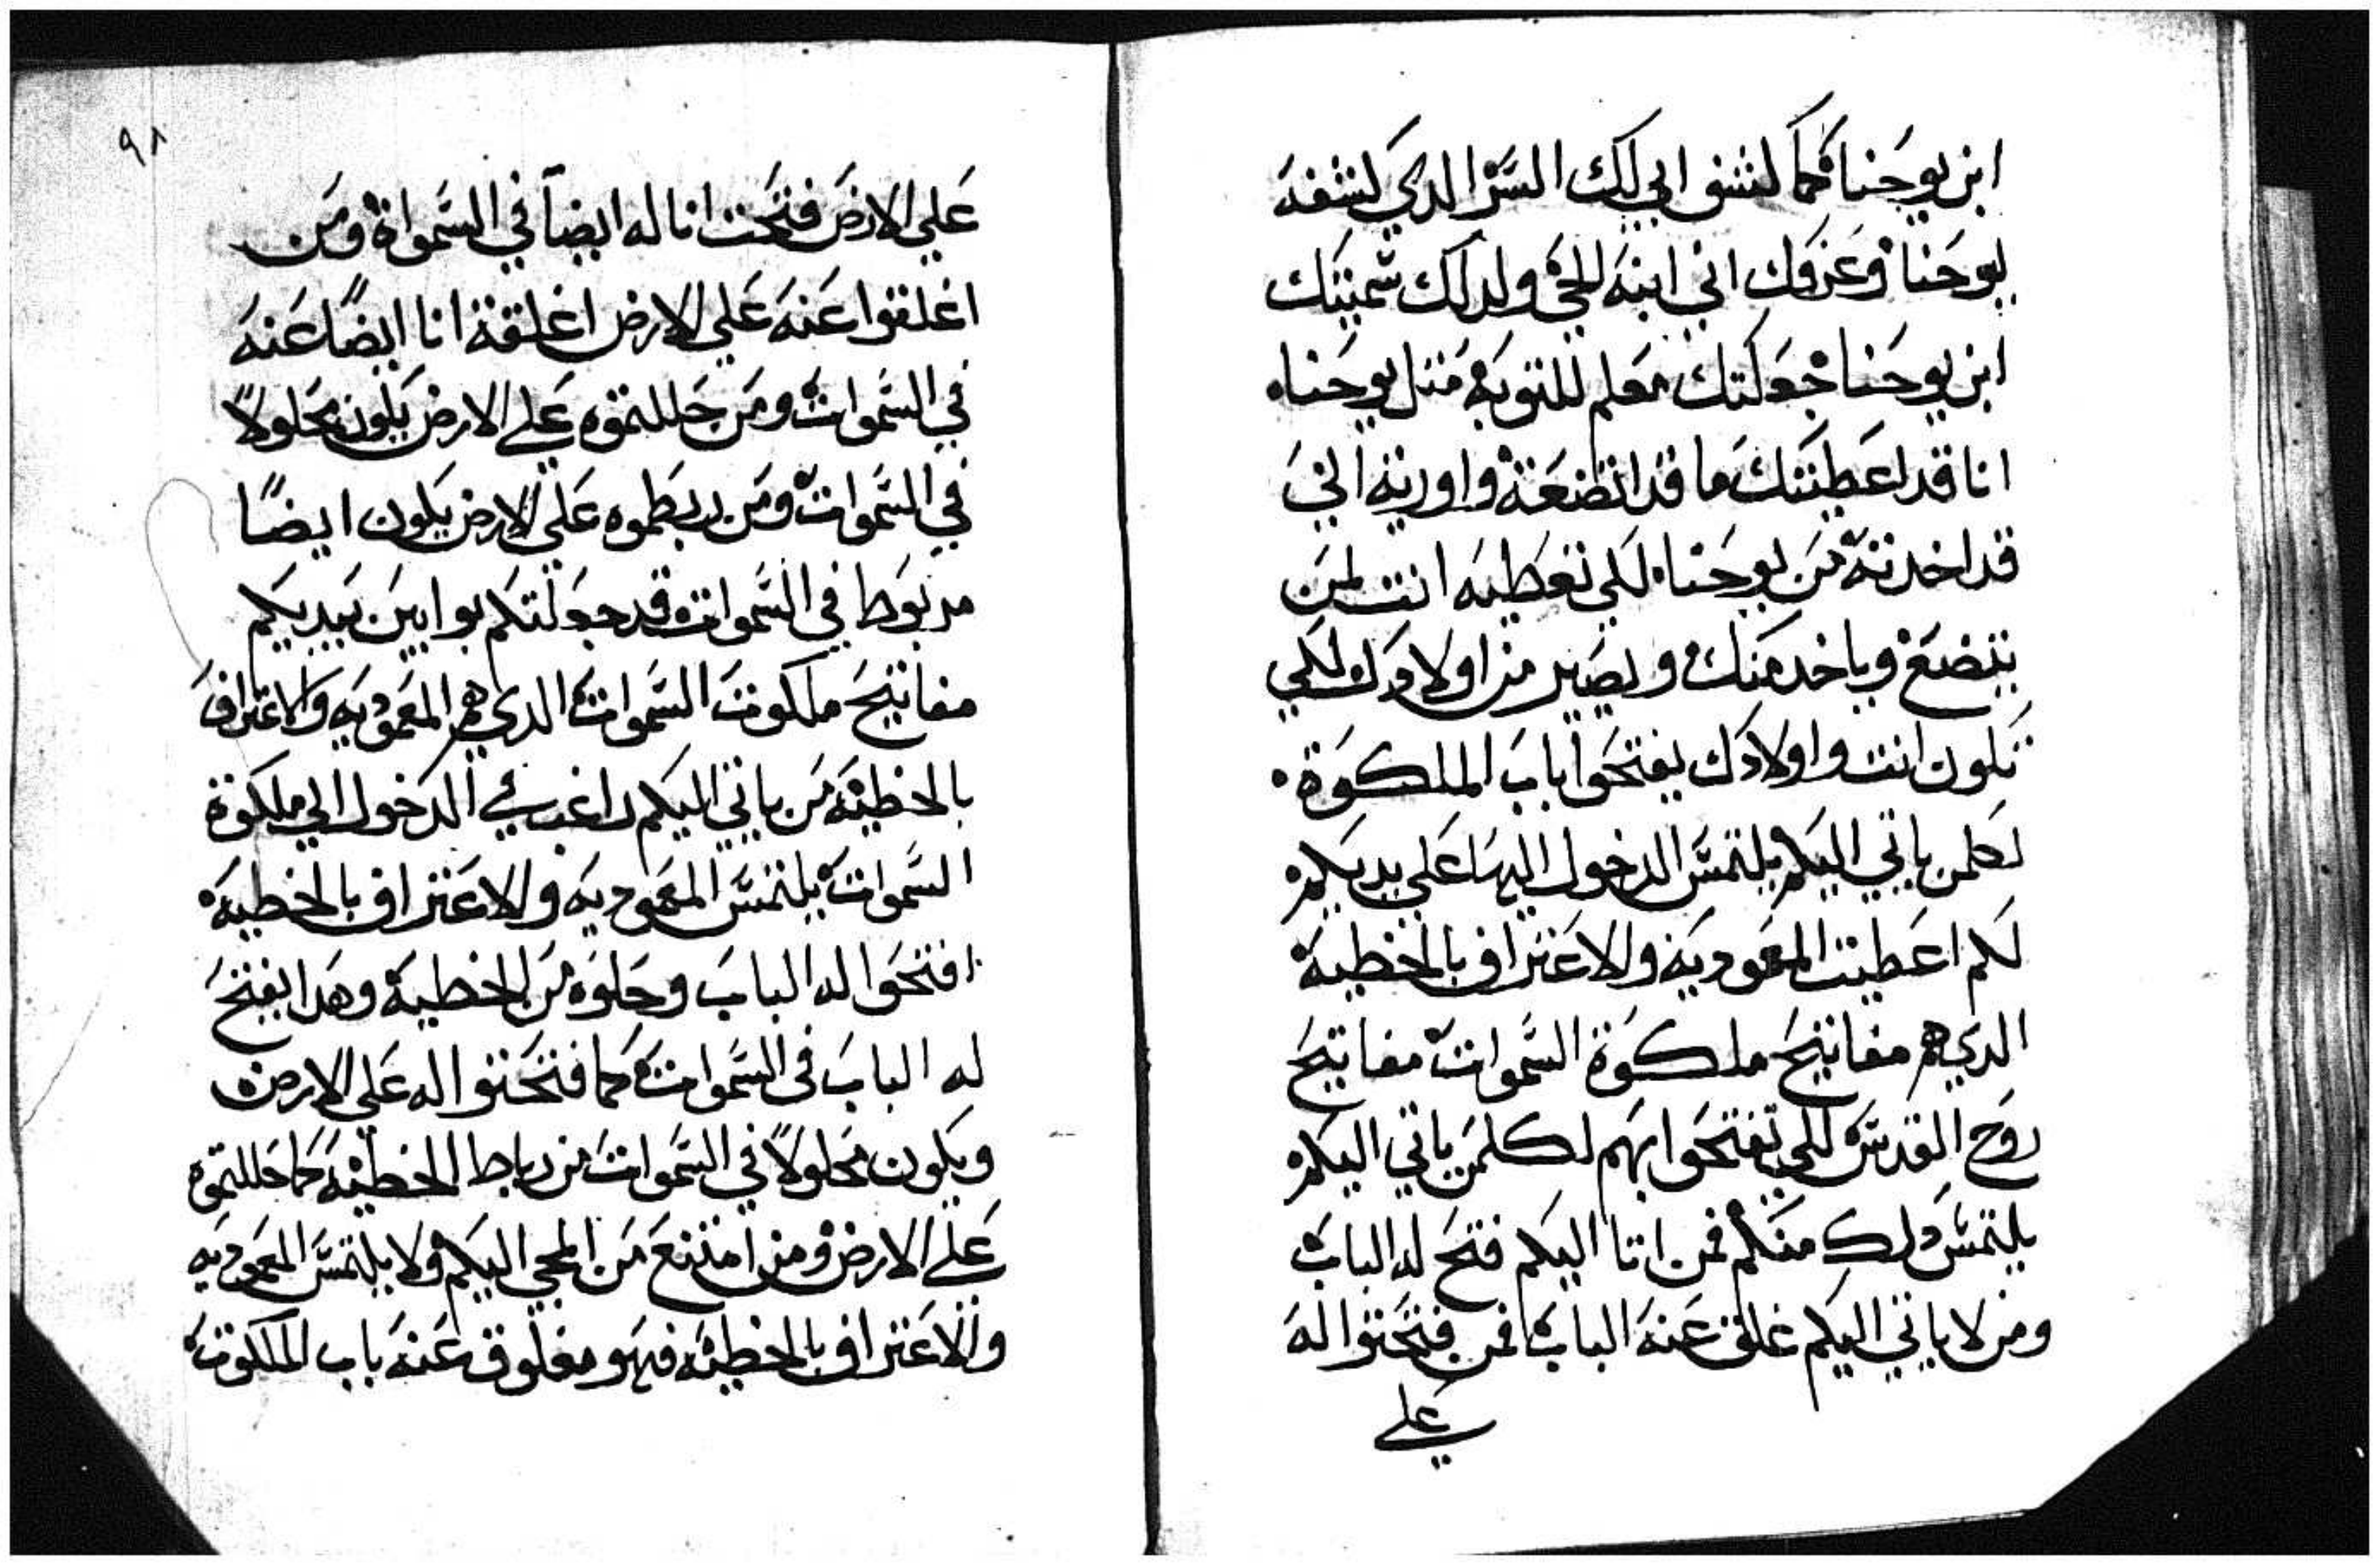 ابن يوحنا فكما كشف ابي لك السر الدي كشفه
ليوحنا وعرفك اني ابنه الحي ولدلك سميتك
ابن يوحنا جعلتك معلم للتوبه متل يوحنا
انا قد اعطيتك ما قد اتضعة واوريته اني
قد اخدته من يوحنا لكي تعطيه انت لمن
يتضع وياخد منك ويصير من اولادك لكي
تكون انت واولادك يفتحوا باب الملكوة
لكلمن ياتي اليكم يلتمس الدخول اليها علي يديكم
لكم اعطيت المعموديه والاعتراف بالخطيه
الدي هم مفاتيح ملكوة السموات مفاتيح
روح القدس لكي تفتحوا بهم لكلمن ياتي اليكم
يلتمس دلك منكم فمن اتا اليكم فتح له الباب
ومن لا ياتي اليكم غلق عنه الباب فمن فتحتوا له
علي
٩٨
علي الارض فتحت انا له ايضاً في السمواة ومن
اغلقتوا عنه علي الارض اغلقة انا ايضًا عنه
في السموات ومن حللتموه علي الارض يكون محلولاً
في السموات ومن ربطموه علي الارض يكون ايضًا
مربوطا في السموات وقد جعلتكم بوابين بيديكم
مفاتيح ملكوت السموات الدي هم المعموديه والاعتراف
بالخطيه من ياتي اليكم راغب في الدخول الي ملكوة
السموات يلتمس المعموديه والاعتراف بالخطيه
افتحوا له الباب وحلوه من الخطيه وهدا يفتح
له الباب في السموات كما فتحتوا له علي الارض
ويكون محلولاً في السموات من رباط الخطيه كما حللتموه
علي الارض ومن امتنع من المجي اليكم ولا يلتمس المعموديه
والاعتراف بالخطيه فهو مغلوق عنه باب الملكوت